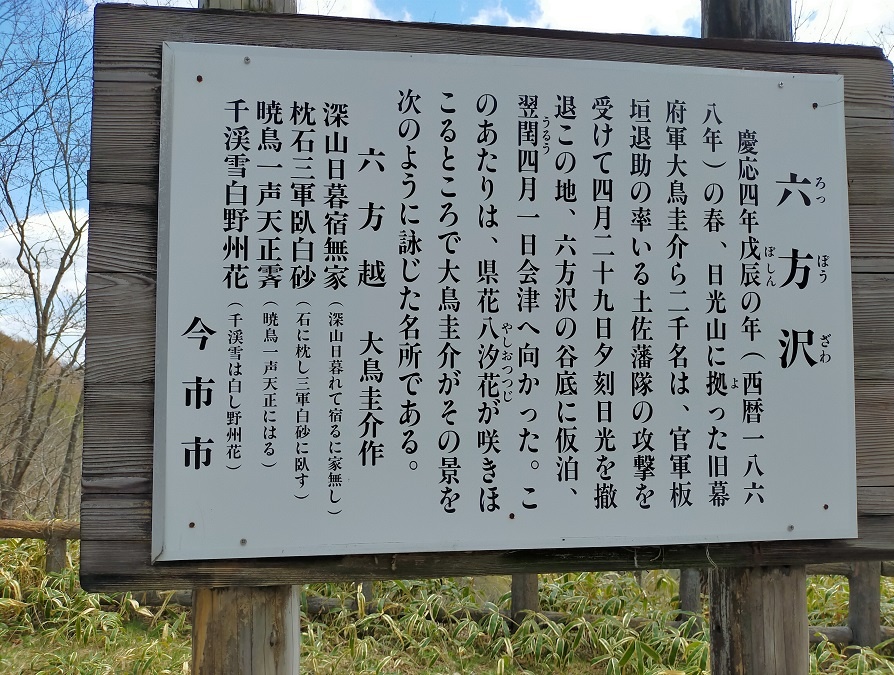 六方沢
ろっぽうざわ
慶応四年戊辰の年(西暦一八六
ぼしん
八年)の春、日光山に拠った旧幕
よ
府軍大鳥圭介ら二千名は、官軍板
垣退助の率いる土佐藩隊の攻撃を
受けて四月二十九日夕刻日光を撤
退この地、六方沢の谷底に仮泊、
翌閏四月一日会津へ向かった。こ
うるう
のあたりは、県花八汐花が咲きほ
やしおつつじ
こるところで大鳥圭介がその景を
次のように詠じた名所である。
六方越 大鳥圭介作
深山日暮宿無家(深山日暮れて宿るに家無し)
枕石三軍臥白砂(石に枕し三軍白砂に臥す)
暁鳥一声天正霽(暁鳥一声天正にはる)
千渓雪白野州花(千渓雪は白し野州花)
今市市